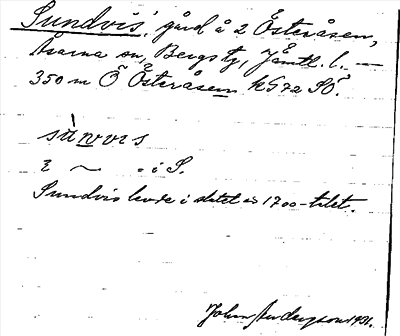 Sundvis, gård å 2 Österåsen,
Åsarna sn, Bergs tg, Jämtl. l. —
350 m Ö Österåsen kS72 SÖ.
sùnvis
i ~ . i S.
Sundvis levde i slutet av 1700-talet.
Johan Andersson 1931.